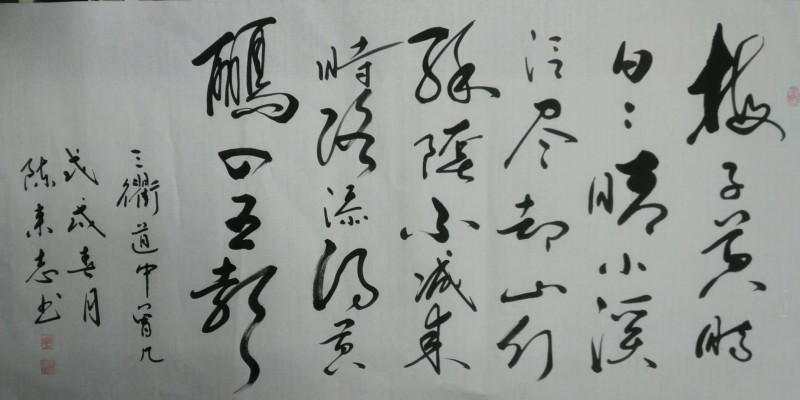 梅子黄时
日日晴小溪
泛尽却山行
绿阴不减来
时路添得黄
鹂四五声
三衢道中曾几
戊戌春月
陈来志书